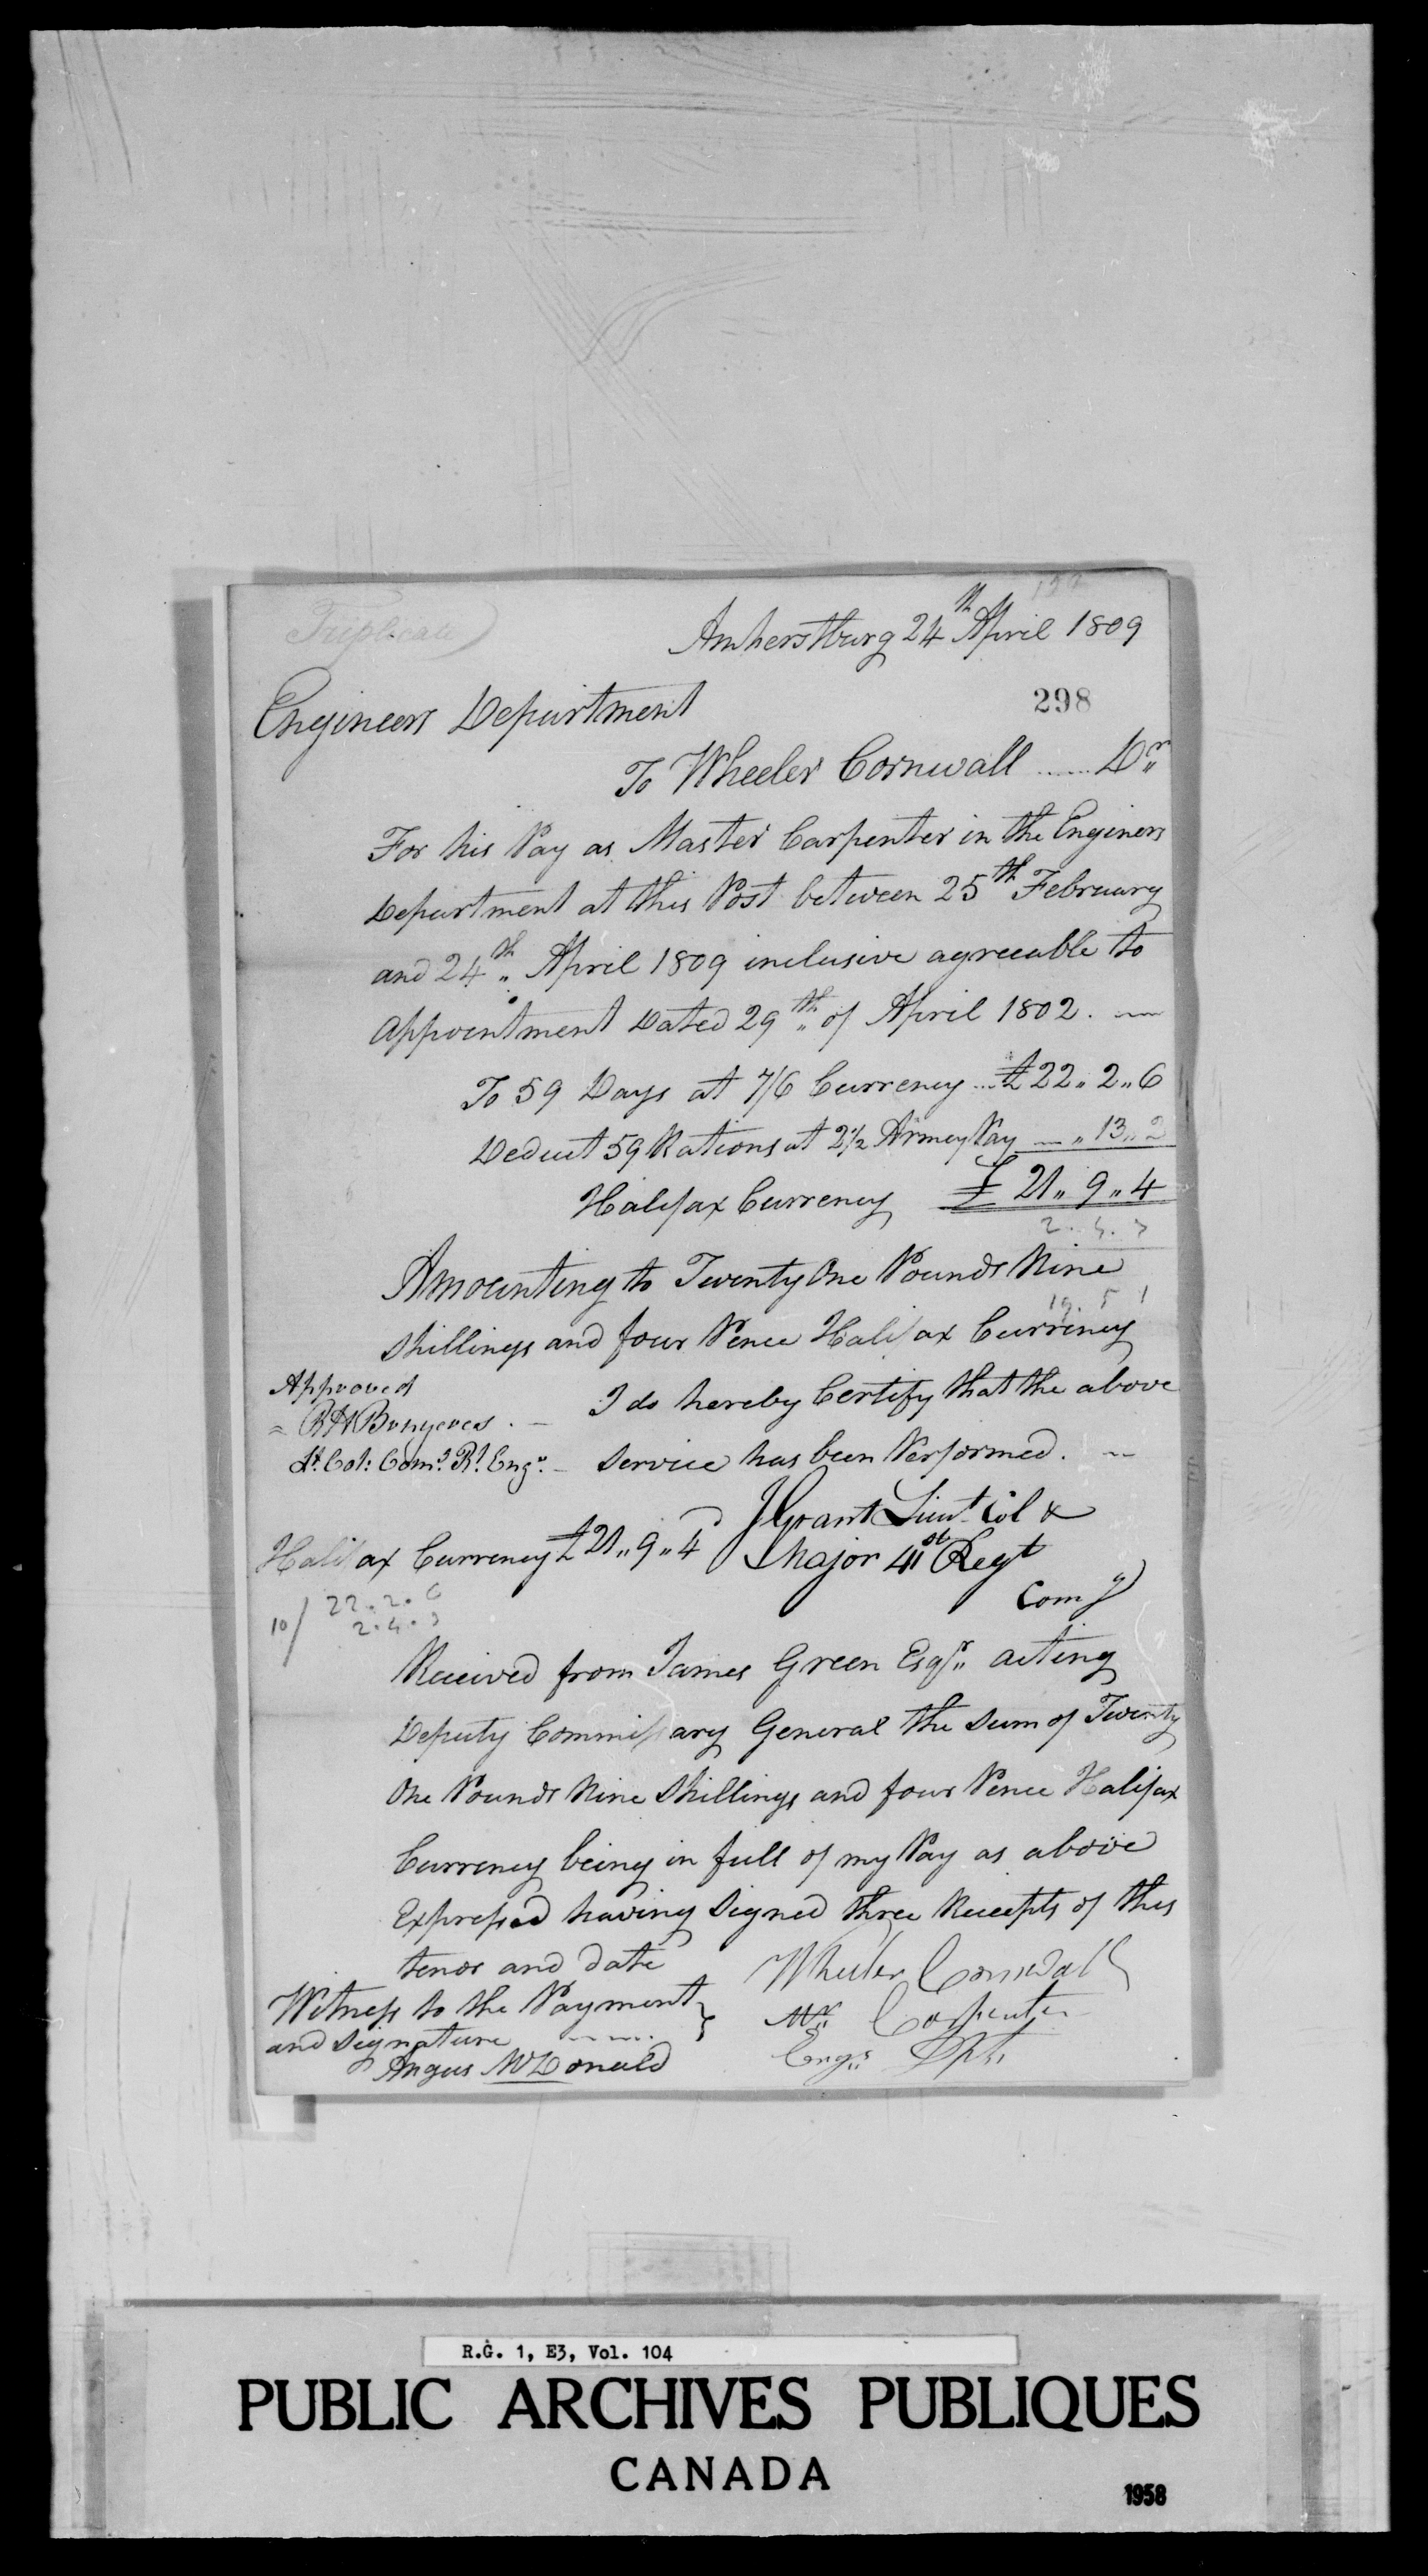 Triplicate
Amherstburg 24th April 1809
298
Engineers Department
To Wheeler Cornwall ...... Dr
For his Pay as Master Carpenter in the Enginers
Department at this Post between 25th February
and 24th April 1809 inclusive agreeable to
appointment Dated 29th of April 1802. —
To 59 Days at 7/6 Currency ... £ 22 „ 2 „ 6
Deduct 59 Rations at 2½ Armey Pay — „ 13 „ 2
Halifax Currency £ 21 „ 9 „ 4
2 . 4 . 3
Amounting to Twenty One Pounds Nine
19 . 5 1
Shillings and four Pence Halifax Currency
Approved
R H Bruyeres . —
Lt. Col: Comg. Rl. Engrs. —
I do hereby Certify that the above
Service has been Performed. —
J Grant Lieut Col &
Major 41st Regt
Comg
Halifax Currency £ 21 „ 9 „ 4
10/ 22 . 2 . 6
2 . 4 . 3
Received from James Green Esqr. acting
Deputy Commissary General the Sum of Twenty
One Pounds Nine Shillings and four Pence Halifax
Currency being in full of my Pay as above
Expressed having Signed three Receipts of this
tenor and date
Wheeler Cornwall
Mr Carpenter
Engs Dpt
Witness to the Payment }
and Signature
Angus McDonald
R.G. 1, E3, Vol. 104
PUBLIC ARCHIVES PUBLIQUES
CANADA
1958